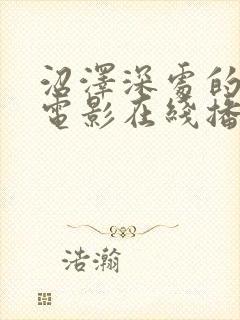 沼澤深處的
電影在綫播
浩瀚